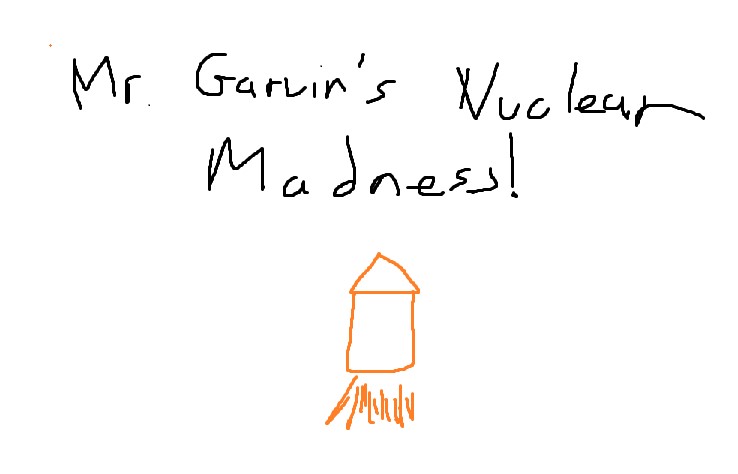 Mr. Garvin's Nuclear
Madness!